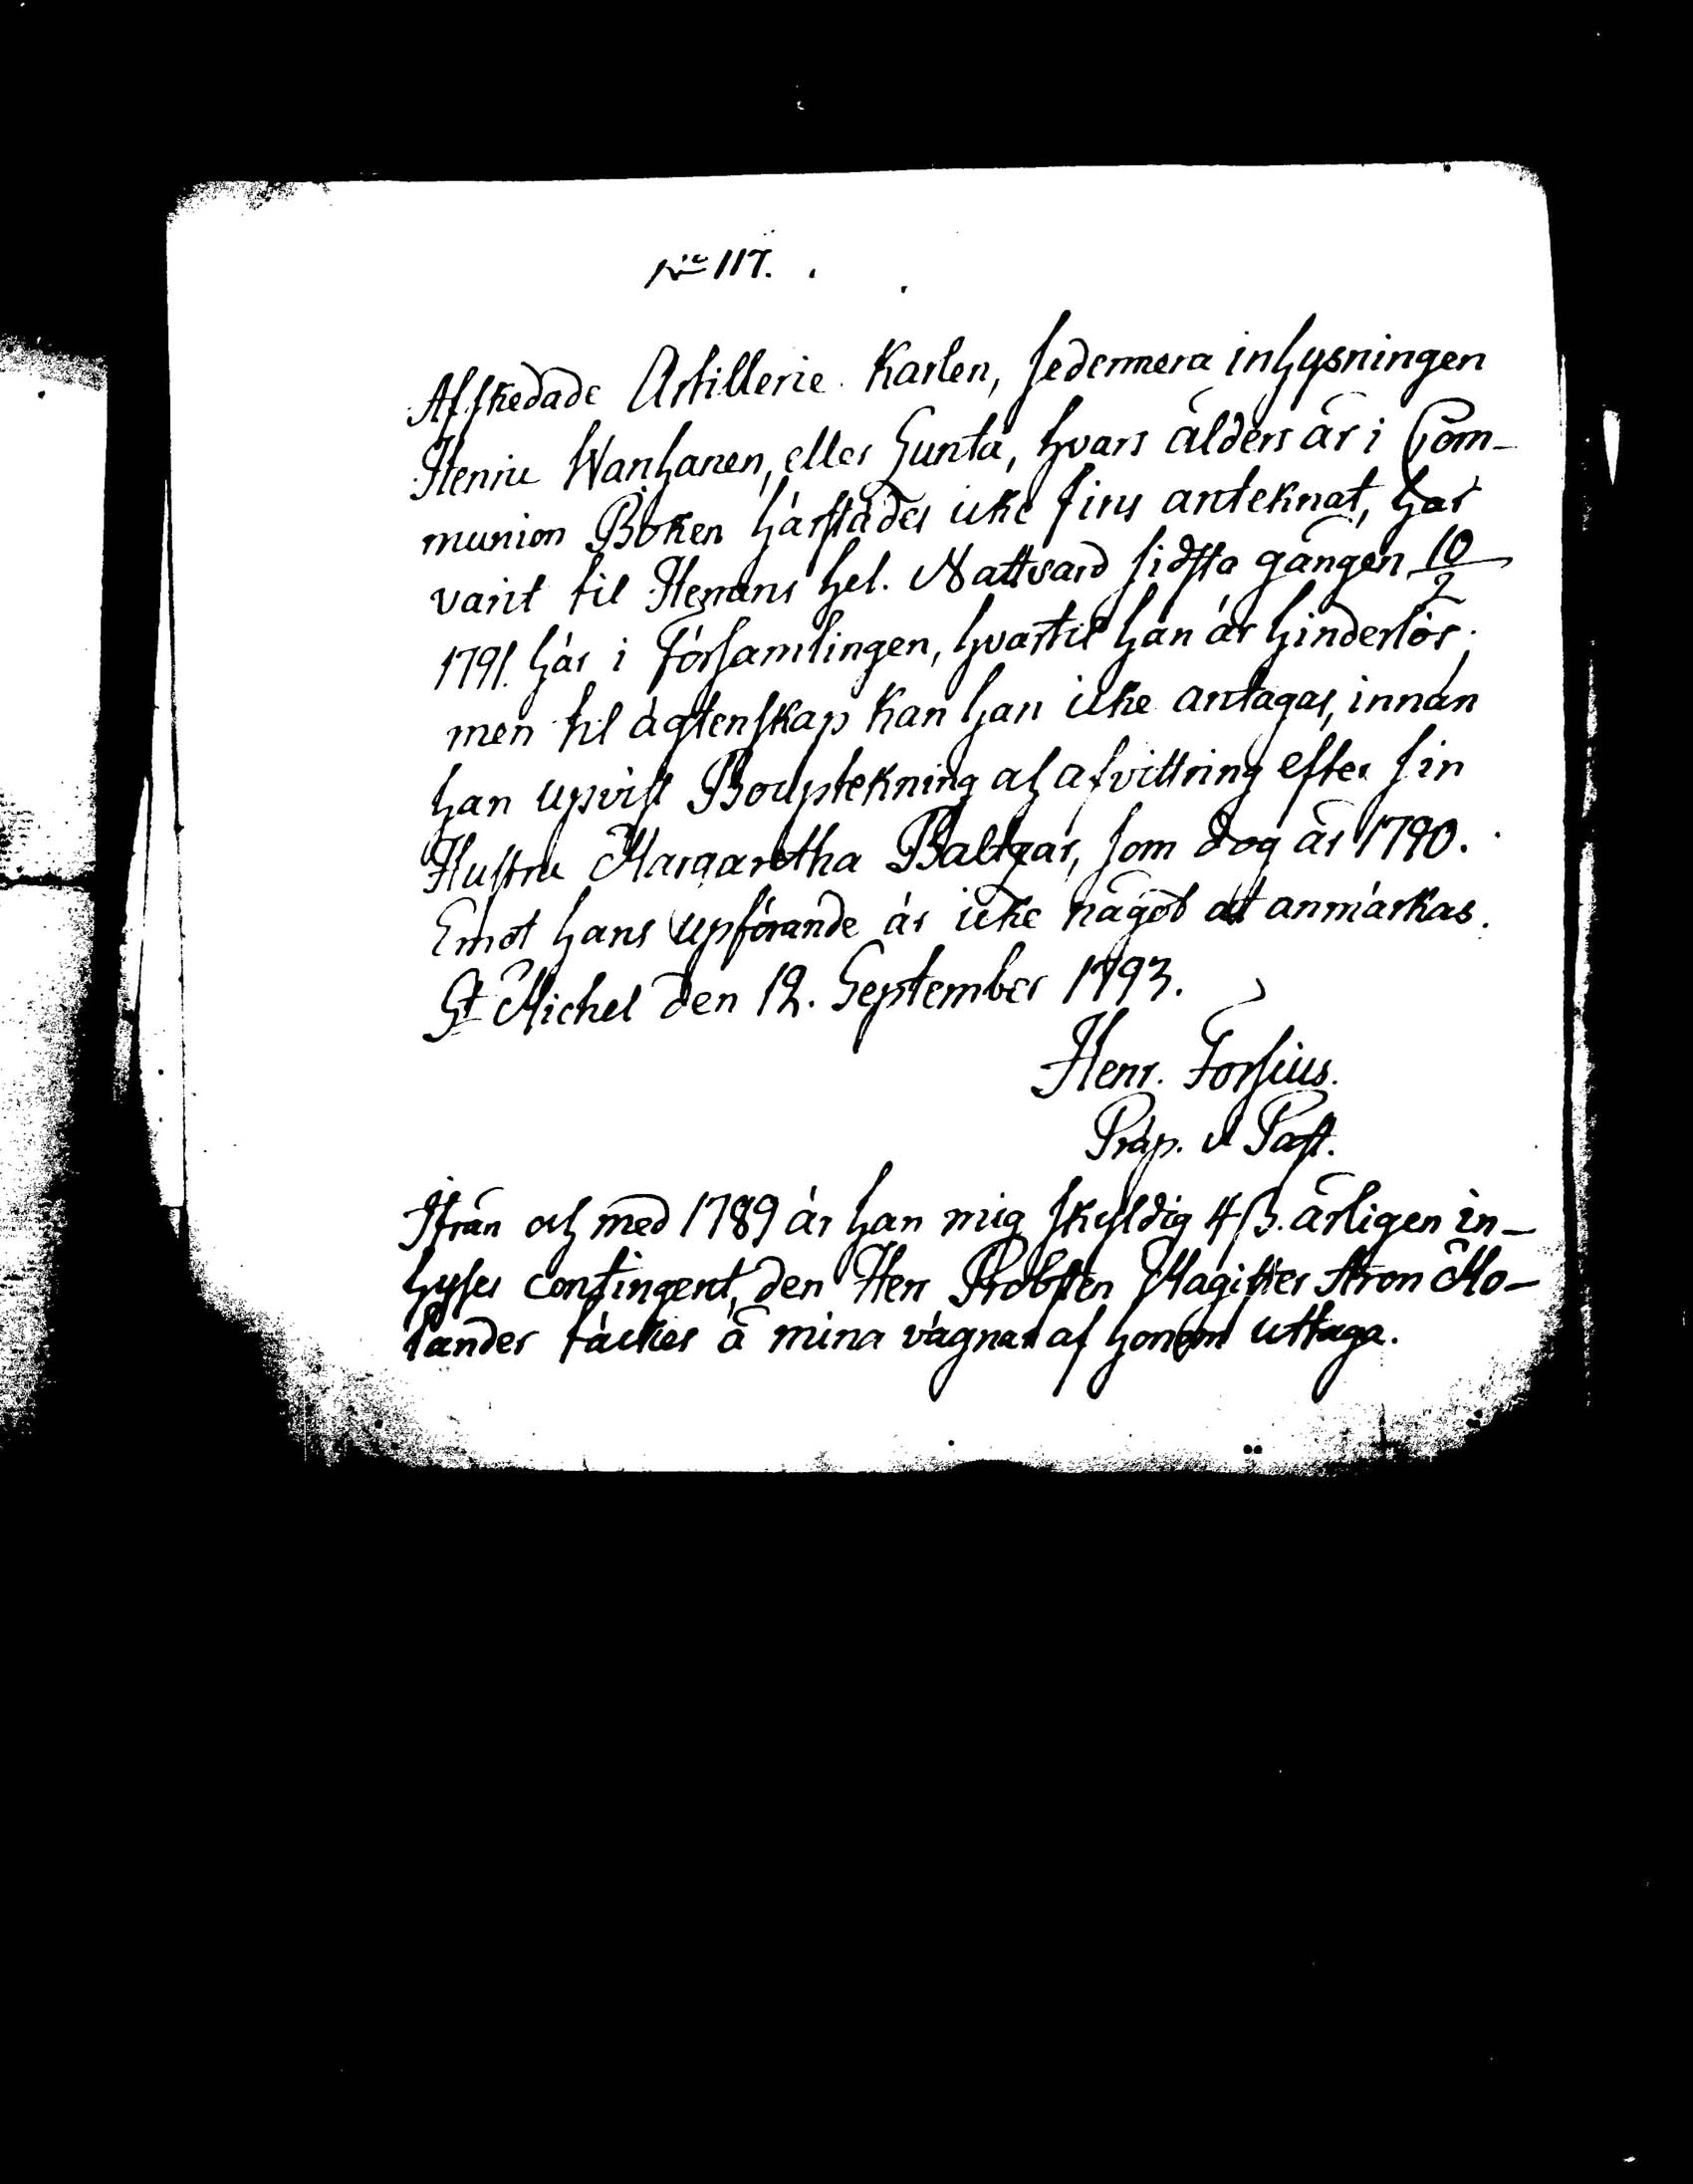 No 117.
Afskedade Artillerie Karlen, sedermera inhysningen
Henric Wanhanen, eller Hunta, hvars ålders år i Com-
munion Boken härstädes icke fins anteknat, har
varit til Herrans hel. Nattvard sidsta gången 10/2
1791. här i Församlingen, hvartil han är hinderlös;
men til ägtenskap kan han icke antagas, innan
han upvist Bouptekning och afvittring efter sin
Hustru Margaretha Baltzar, som dog år 1790.
Emot hans upförande är icke något at anmärkas.
St Michel den 12. September 1793.
Henr. Forsius.
Præp. & Past.
Ifrån och med 1789 är han mig skyldig 4 ß. årligen in-
hyses contingent, den Herr Probsten Magister Aron Mo-
lander täckes å mina vägnar af honom uttaga.